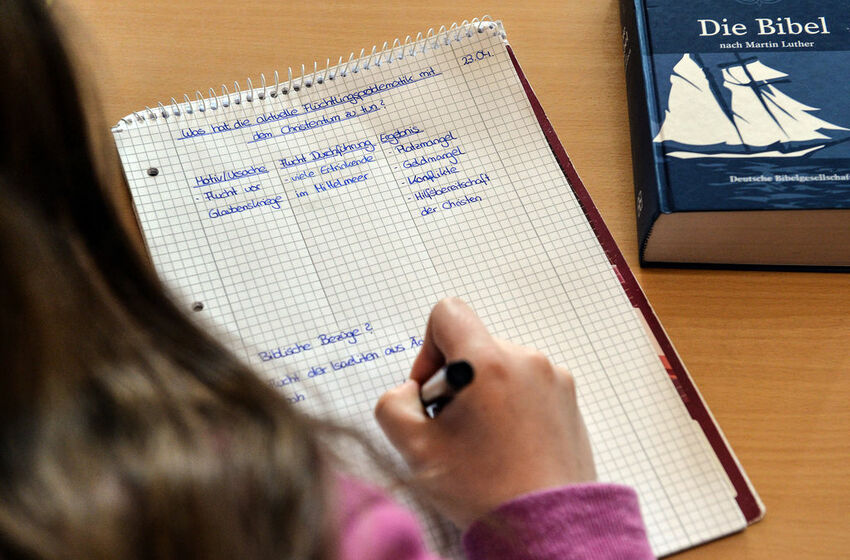 23.04.
Was hat die aktuelle Flüchtlingsproblematik mit
dem Christentum zu tun?
Motiv/Usache
- Flucht vor
Glaubenskriege
Flucht Durchführung
- viele Ertrickende
im Mittelmeer
Ergebnis
- Platzmangel
- Geldmangel
- Konflikte
- Hilfsbereitschaft
der Christen
Biblische Bezüge?
der Isaeliten aus
Die Bibel
nach Martin Luther
Deutsche Bibelgesellschaft